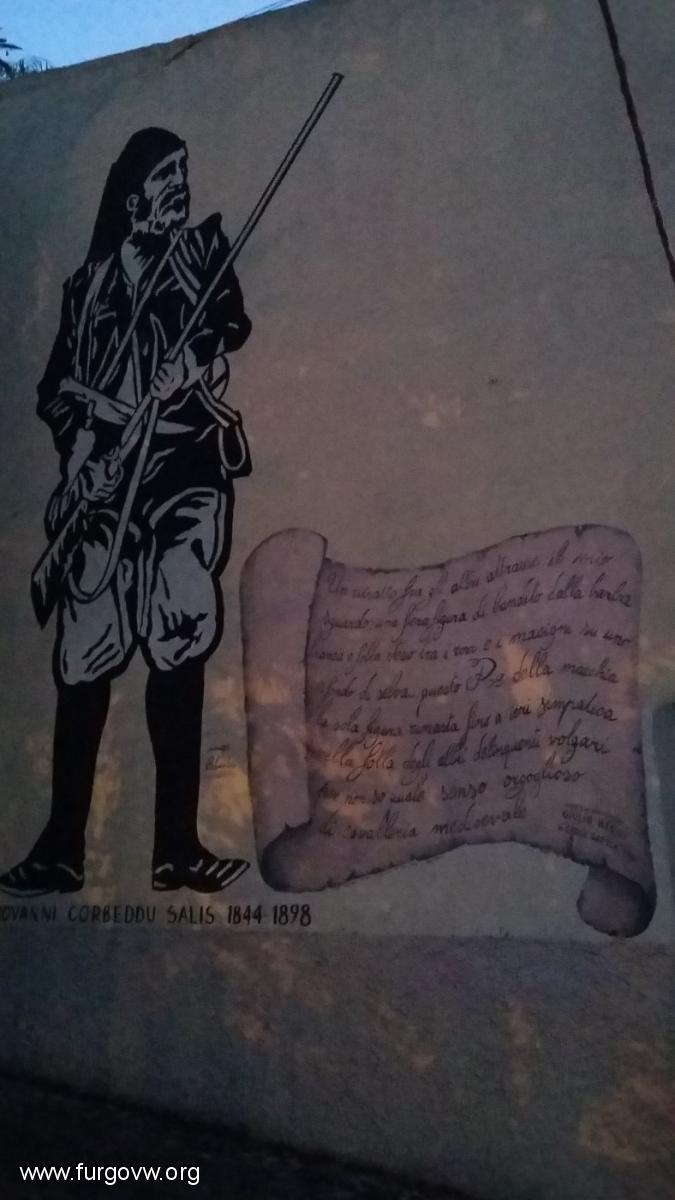 Un ritratto fra gli altri attrasse il mio
sguardo: una fiera figura di bandito dalla barba
bianca e folta, verso tra i rovi e i macigni su uno
sfondo di selva. questo Re della macchia
la sola figura rimasta fino a ieri simpatica
nella folla degli altri delinquenti volgari
per non so quale senso orgoglioso
di cavalleria medioevale
GIULIO
GIOVANNI CORBEDDU SALIS 1844-1898
www.furgovw.org